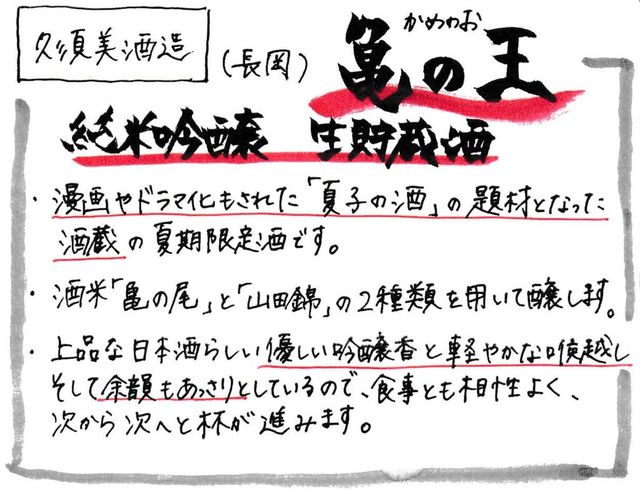 久須美酒造
(長岡)
かめのお
亀の王
純米吟醸 生貯蔵酒
・漫画やドラマ化もされた「夏子の酒」の題材となった
酒蔵の夏期限定酒です。
・酒米「亀の尾」と「山田錦」の2種類を用いて醸します。
・上品な日本酒らしい優しい吟醸香と軽やかな喉越し
そして余韻もあっさりとしているので、食事とも相性よく、
次から次へと杯が進みます。